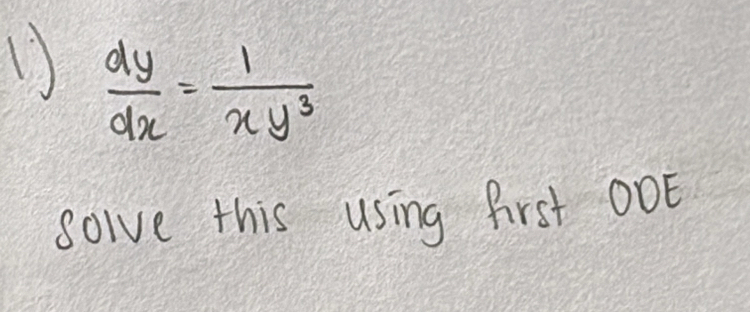 1.) dy/dx = 1/xy³
solve this using first ODE